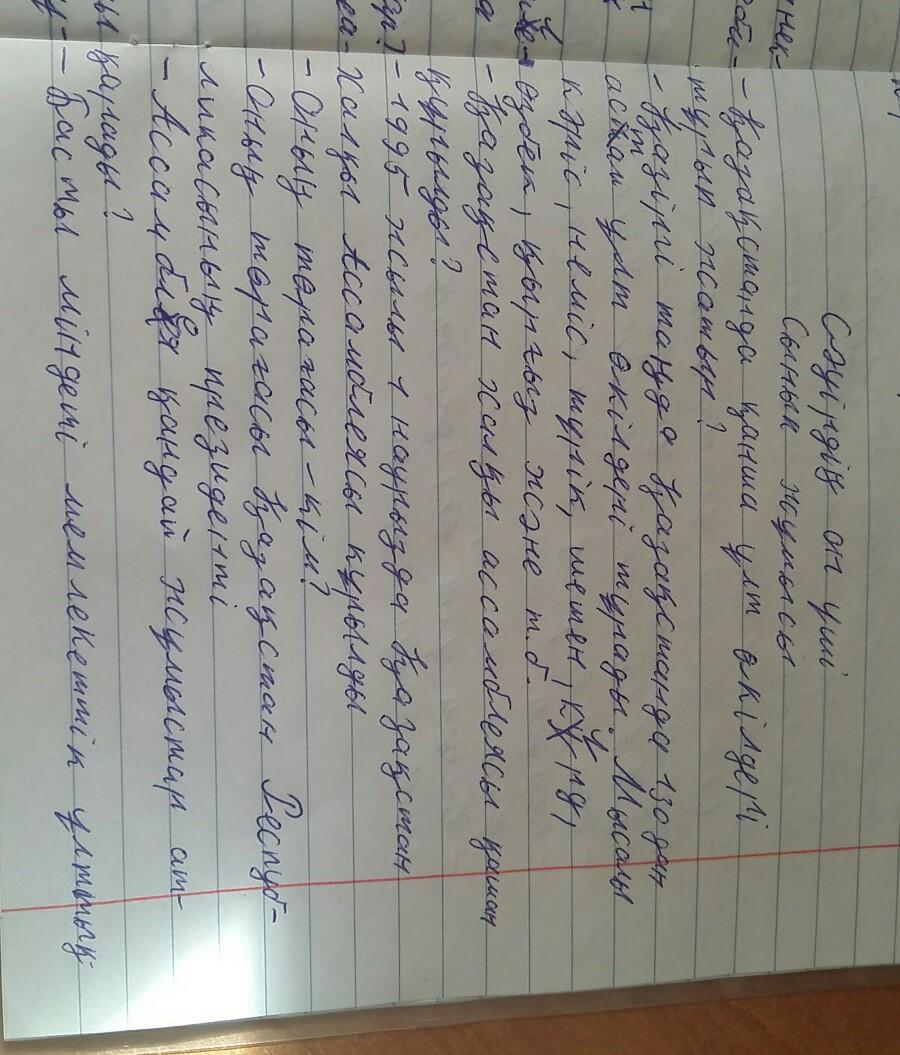 Сәуірдің он үші
Сынып жұмысы
- Қазақстанда қанша ұлт өкілдері
тұрып жатыр?
- Қазіргі таңда Қазақстанда 130 дан
астам ұлт өкілдері тұрады. Мысалы
кәріс, неміс, түрік, шешен, күрд,
өзбек, қырғыз және т.б.
- Қазақстан халқы ассамблеясы қашан
құрылды?
- 1995 жылы 1 наурызда Қазақстан
халқы Ассамблеясы құрылды
- Оның төрағасы - кім?
- Оның төрағасы Қазақстан Респуб-
ликасының президенті
- Ассамблея қандай жұмыстар ат-
қарады?
- Басты міндеті мемлекеттік ұлттық